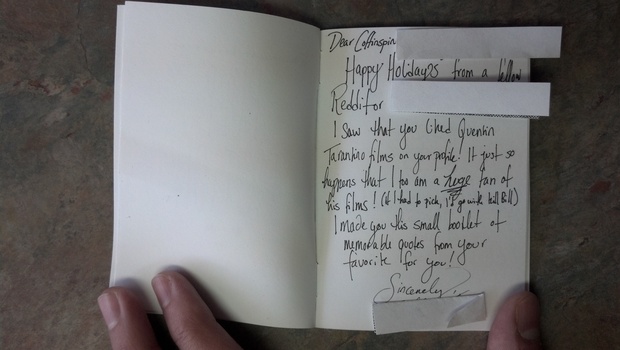 Dear Coffinspin
Happy Holidays from a fellow
Redditor
I saw that you liked Quentin
Tarantino films on your profile! It just so
happens that I too am a huge fan of
his films! (if I had to pick, I'd go with Kill Bill)
I made you this small booklet of
memorable quotes from your
favorite for you!
Sincerely,